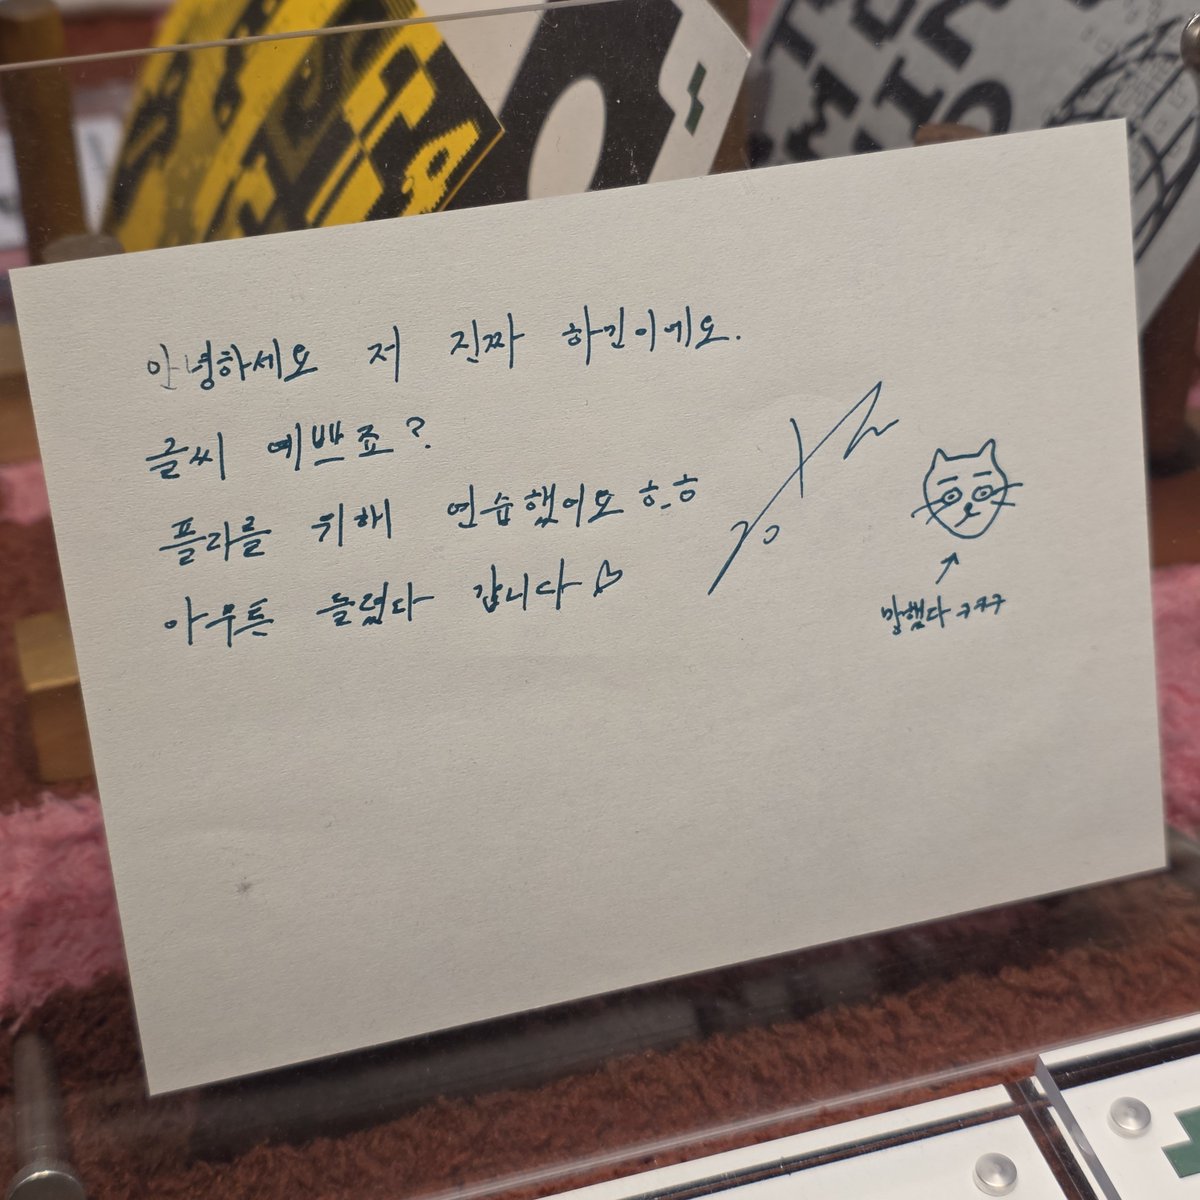 안녕하세요 저 진짜 하긴이에요.
글씨 예쁘죠?
플라를 위해 연습했어요 ㅎ_ㅎ
아무튼 들렀다 갑니다♡
망했다 ㅋㅋㅋ